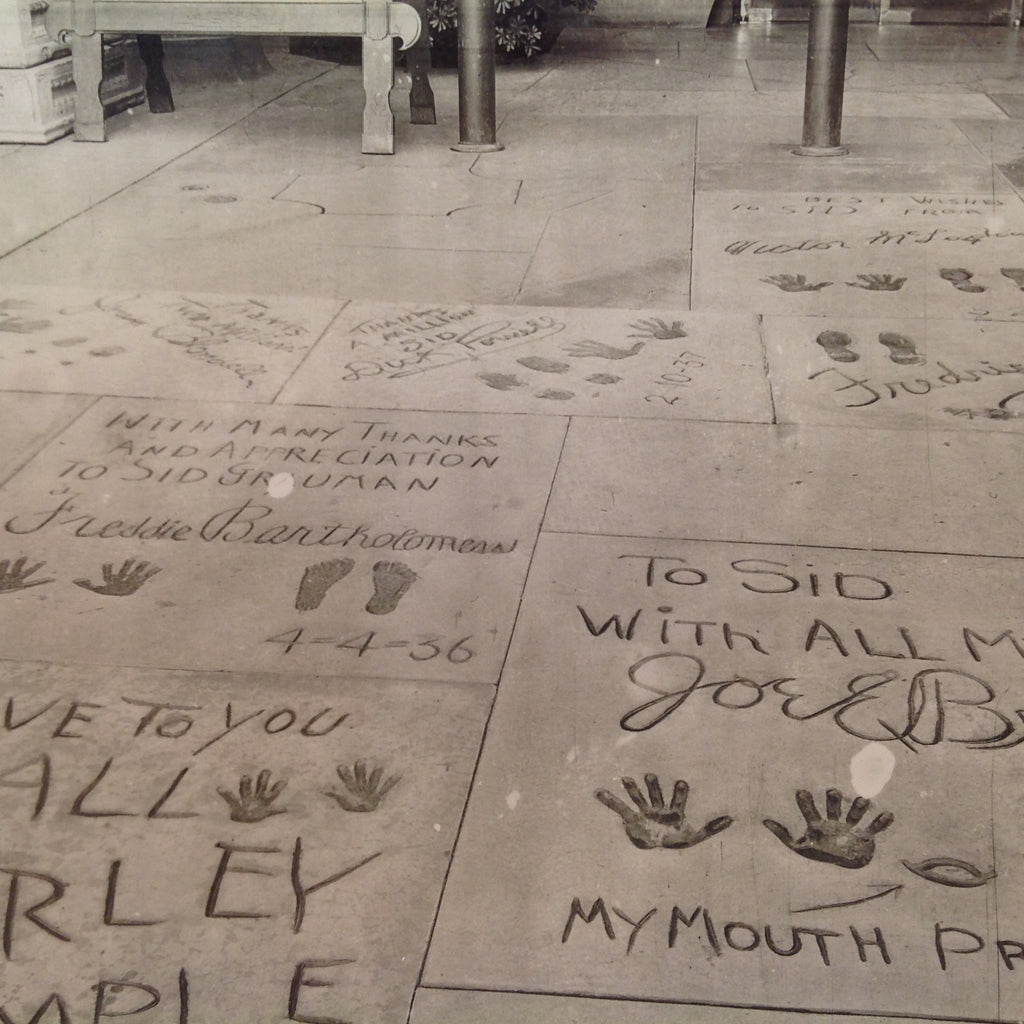 BEST WISHES
TO SID FROM
THANKS
A MILLION
SID
Dick Powell
2-10-37
Fredric
WITH MANY THANKS
AND APPRECIATION
TO SID GRAUMAN
Freddie Bartholomew
4-4-36
TO SID
WITH ALL M
JOE E B
MY MOUTH PR
VE TO YOU
ALL
RLEY
MPLE